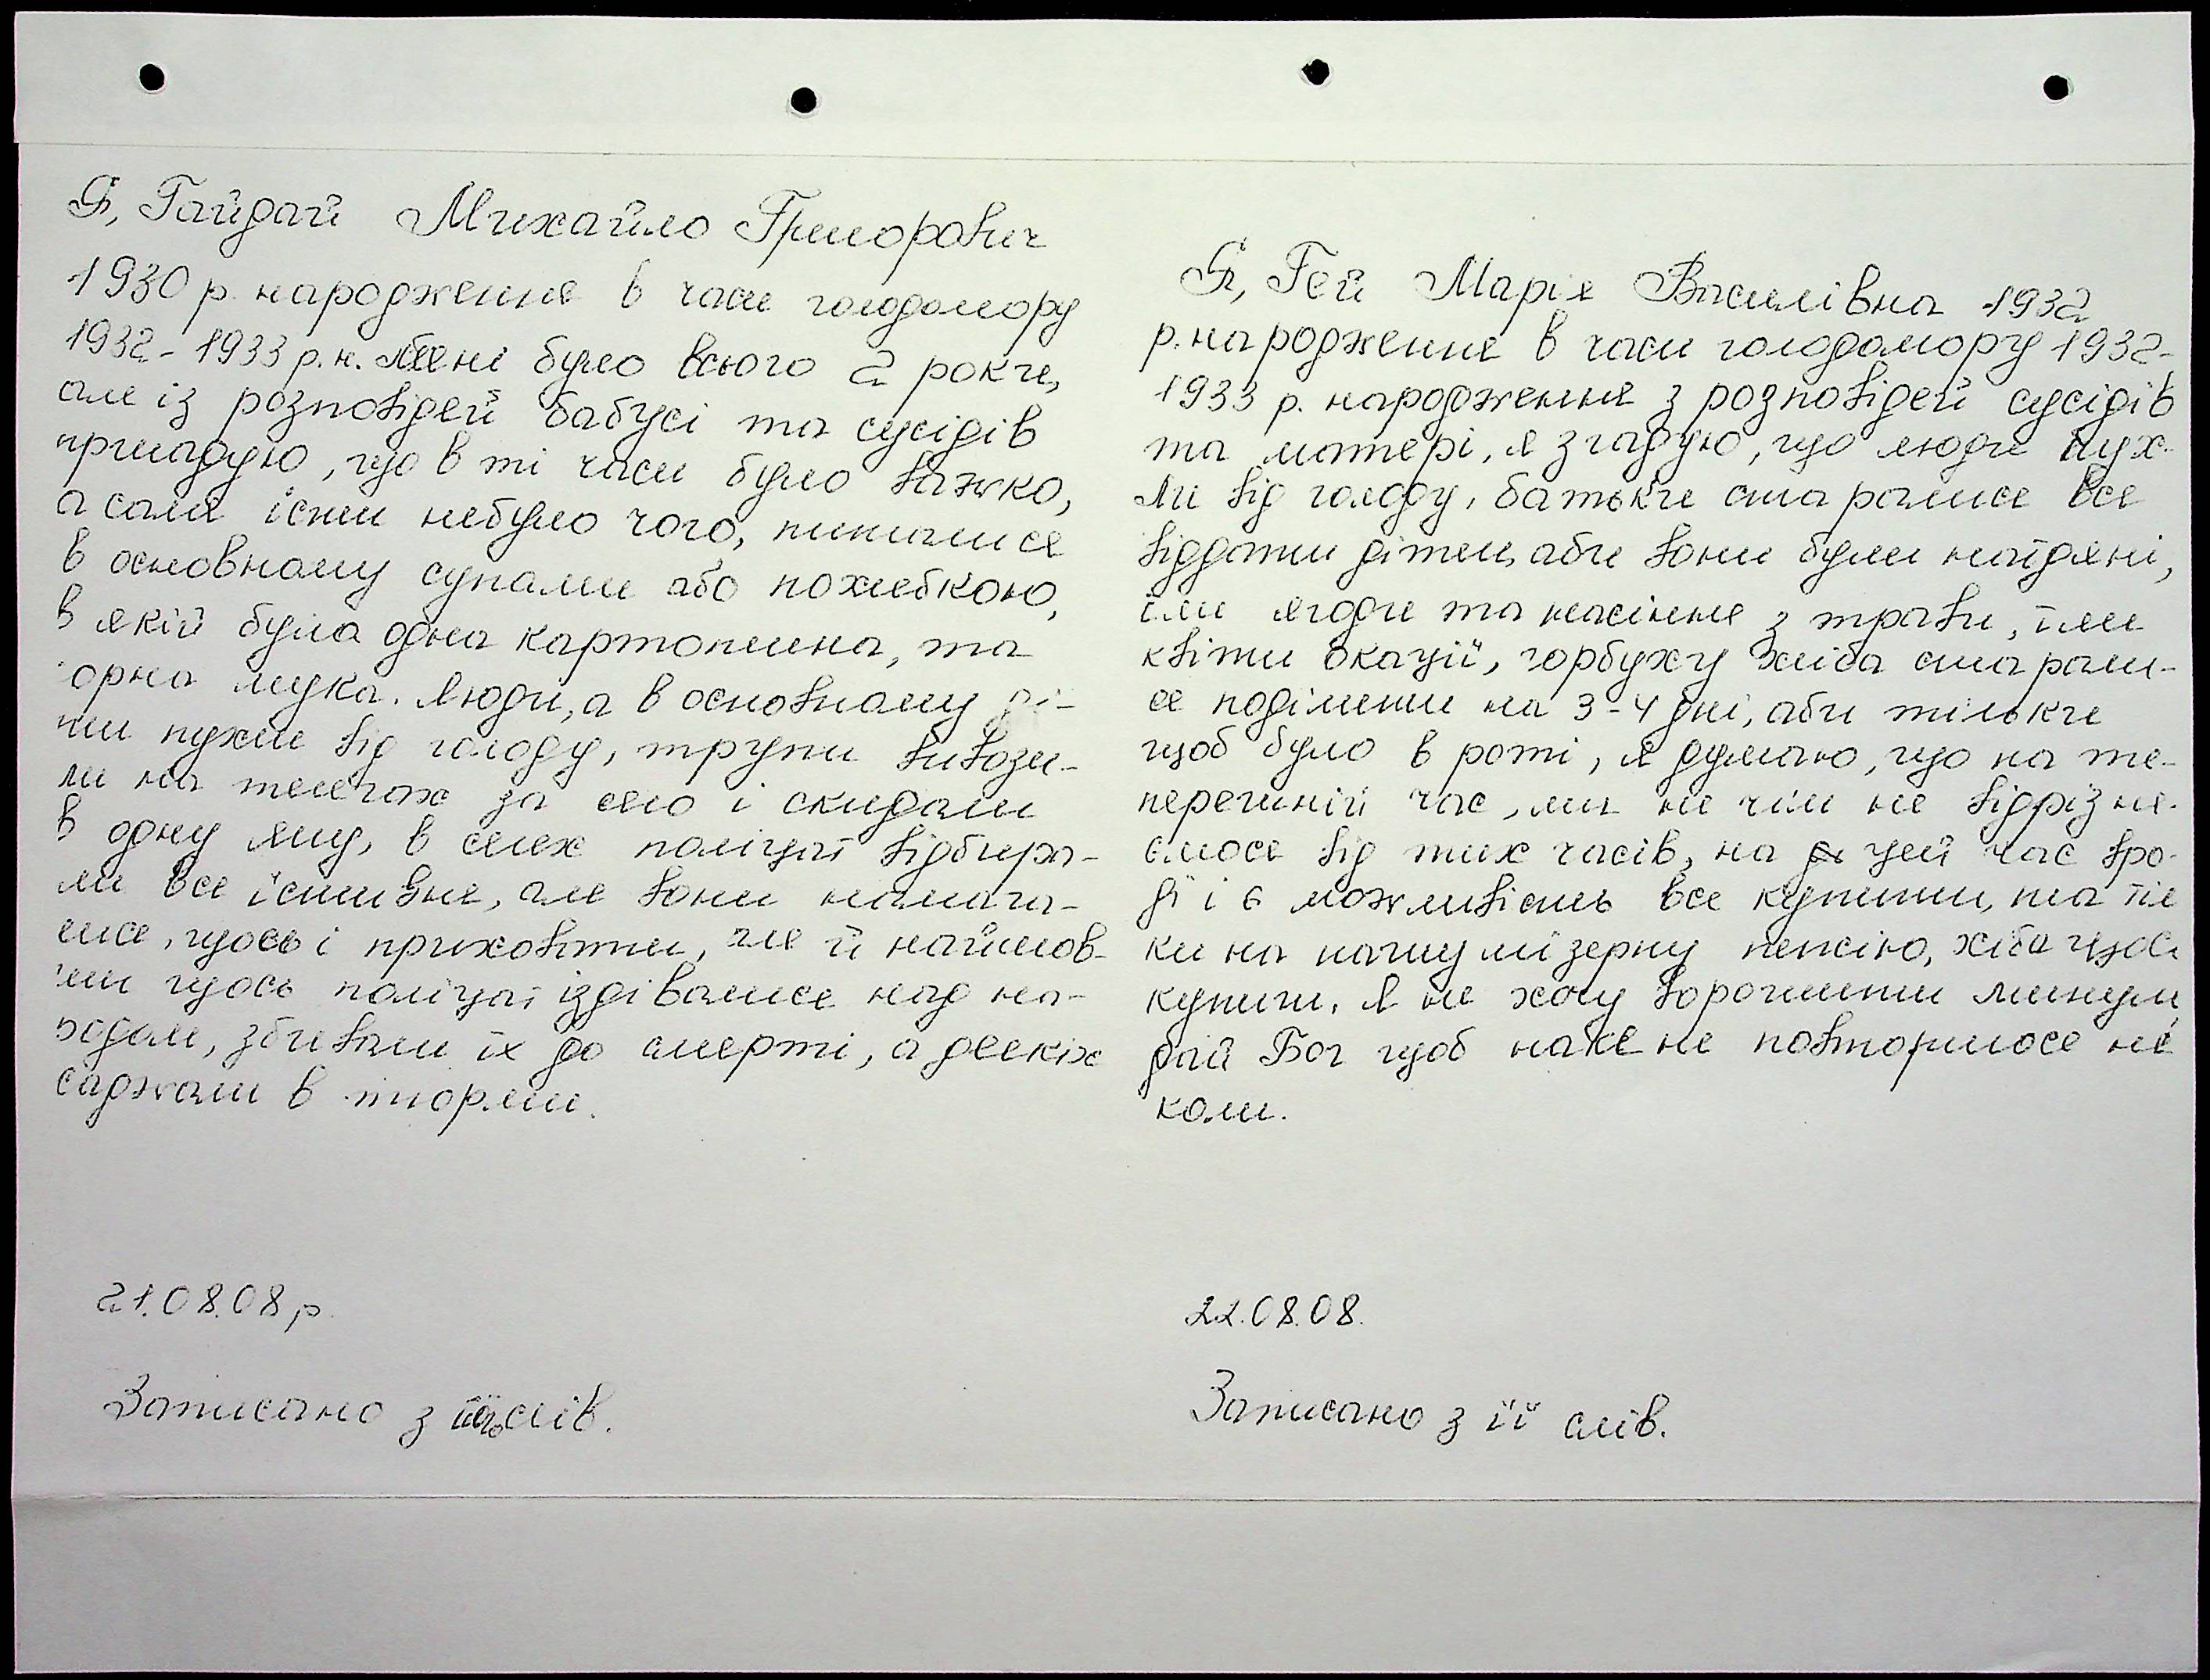 Я, Гайдай Михайло Григорович
1930 р. народження в часи голодомору
1932-1933 р.н. Мені було всього 2 роки,
але із розповідей бабусі та сусідів
пригадую, що в ті часи було важко,
а саме їсти небуло чого, питалися
в основному супами або похлебкою,
в якій була одна картоплина, та
орна мука. Люди, а в основному ді-
ти пухли від голоду, трупи вивози-
ли на телегах за село і скидали
в одну яму, в селех поліцаї відбира-
ли все їстивне, але вони намага-
лися, щось і приховати, але й найшов-
ши щось поліцаї іздівалися над на-
родом, збивали їх до смерті, а деяких
саджали в тюрми.
21.08.08 р.
Записано з його слів.
Я, Гей Марія Василівна 1932
р. народження в часи голодомору 1932-
1933 р. народження з розповідей сусідів
та матері, я згадую, що люди пух-
ли від голоду, батьки старалися все
віддати дітям, аби вони були найдяні,
їли ягоди та насіння з трави, їли
квіти окації, горбуху хліба старали-
ся поділити на 3-4 дні, аби тільки
щоб було в роті, я думаю, що на те-
перешній час, ми не чім не відрізня-
ємося від тих часів, на цей час вро-
ді і є можливість все купити, та тіль
ки на нашу мізерну пенсію, хіба щось
купиш. Я не хочу ворошити минуле,
дай Бог щоб таке не повторилося ні
коли.
22.08.08.
Записано з її слів.